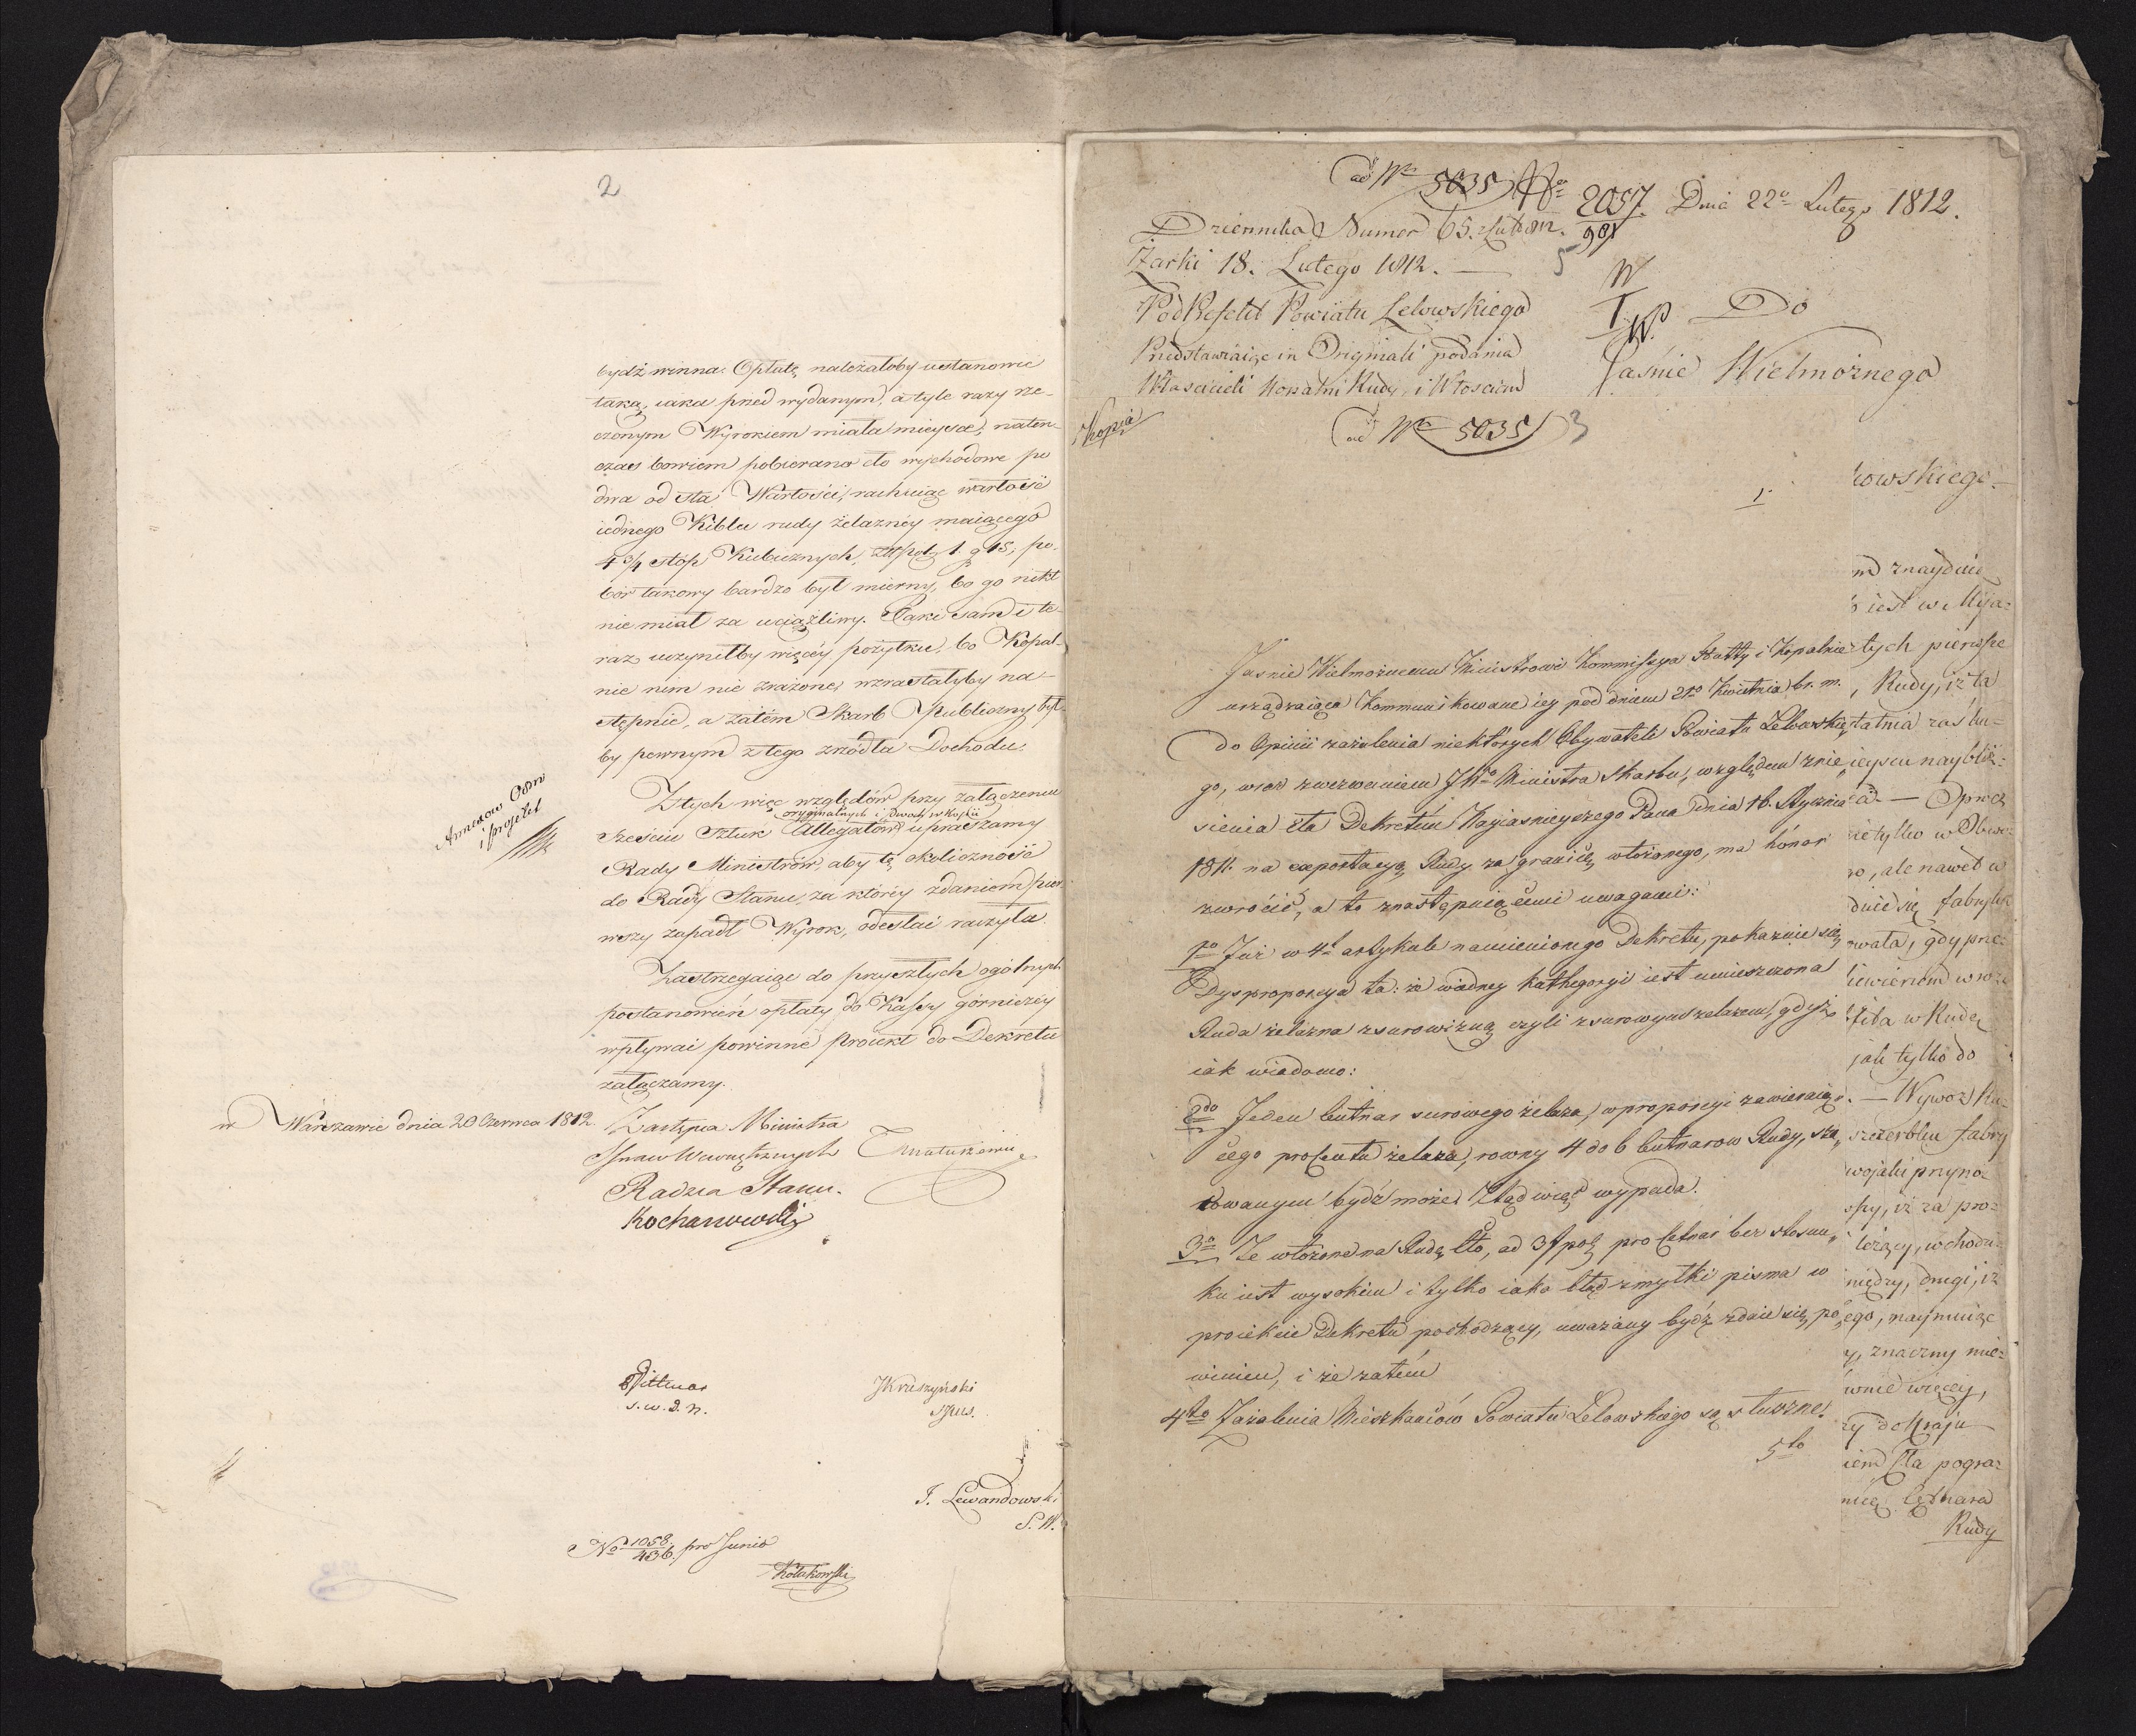 2
bydź winna. Opłatę należałoby ustanowić
taką, iaka przed wydanym, a tyle razy rze-
czonym Wyrokiem miała mieysce, naten-
czas bowiem pobierano cło wychodowe po
dwa od sta Wartości, rachuiąc wartość
iednego Kibla rudy żelazney maiącego
4 3/4 stóp Kubicznych, złp 1 g 15, po-
bór takowy bardzo był mierny, bo go nikt
nie miał za uciążliwy. Taki sam i te-
raz uczyniłby więcéy pożytku, bo Kopal-
nie nim nie zrażone, wzrastałyby na-
stępnie, a zatém Skarb Publiczny był-
by pewnym z tego zrzódła Dochodu.
Z tych więc względów przy załączeniu
oryginalnych i dwóch w kopii
sześciu Sztuk Allegatów upraszamy
Rady Ministrów, aby tę okoliczność
do Rady Stanu, za któréy zdaniem pier-
wszy zapadł Wyrok, odesłać raczyła.
Annexów
i projekt
Zastrzegaiąc do przyszłych ogólnych
postanowień opłaty do Kassy górniczéy
wpływać powinné proiekt do Dekretu
załączamy.
w Warszawie dnia 20 Czerwca 1812.
Zastępca Ministra
Spraw Wewnętrznych
Radzca Stanu.
Kochanowski
Dittmar
s. w. d. n.
JKruszyński
J. Lewandowski
S. W.
No 1058/436 pro Junio
Kołakowski
ad No 5035 No 2057/981 Dnia 22o Lutego 1812.
Dziennika Numer 65. Lut 812.
Żarki 18. Lutego 1812. — 5
PodPrefekt Powiatu Lelowskiego
Przedstawiaiąc in Originali podania
Właścicieli Kopalni Rudy, i Włoscian
Do
Jaśnie Wielmożnego
Kopia
ad No 5035 3
1.
Jasnie Wielmożnemu Ministrowi Kommissya Hutty i Kopalnie
urządzaiąca Kommunikowane iey pod dniem 21o Kwietnia br. m.
do Opinii zażalenia niektórych Obywateli Powiatu Lelowskie„
go, wraz z wezwaniem JWo Ministra Skarbu, względem znie„
sienia Cła Dekretem Nayiasnieyszego Pana dnia 16. Stycznia
1811. na exportacyą Rudy za granicę włożonego, ma hónor
zwrócić, a to z następuiącemi uwagami:
1o Już w 4. artykule namienionego Dekretu, pokazuie się
Dysproporcya ta: że w iedney kathegoryi iest umieszczona
Ruda żelazna z surowizną czyli z surowym żelazem, gdyż
iak wiadomo:
2do Jeden Cutnar surowego żelaza, w proporcyi zawieraią„
cego procentu żelaza, rowny 4 do 6 Cutnarow Rudy, sza„
cowanym bydź może. Ztąd więc wypada.
3o Że włożone na Rudę Cło, ad 3 fpol. pro Cetnar bez stosun„
ku iest wysokim i tylko iako błąd zmyłki pisma w
proiekcie Dekretu pochodzący, uważany bydź zdaie się po„
winien, i że zatém
4to Zażalenia Mieszkańców Powiatu Lelowskiego są słuszne.
5to
lowskiego.
znayduie
tych pierwsze
Rudy, iż ta
mieyscu naybliż-
— Oprócz
nietylko w Obwo-
ale nawet w
się fabryk
gdy prze-
w Rudę
jak tylko do
— Wywoz Ru-
fabry
iż za pro-
drugi, iż
znaczny
więcéy,
do Kraju
Cła pogra-
Cetnara
Rudy